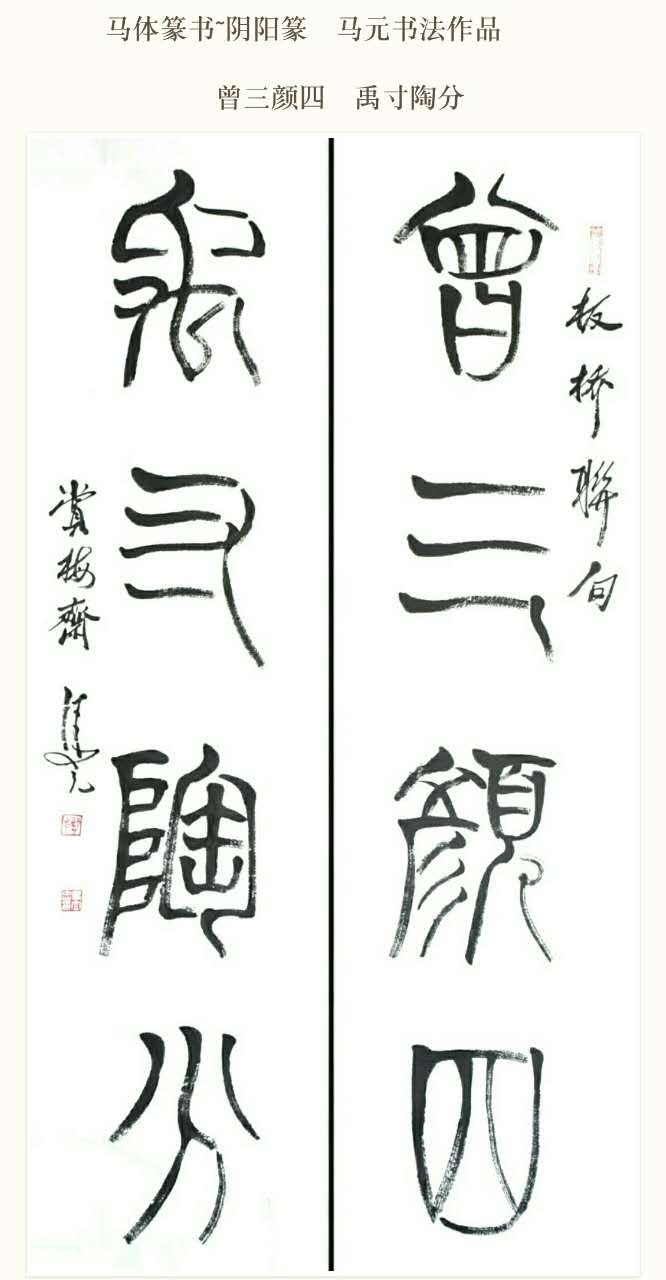 马体篆书~阴阳篆　马元书法作品
曾三颜四　禹寸陶分
板橋聯句
曾三顏四
禹寸陶分
賞梅齋 馬元